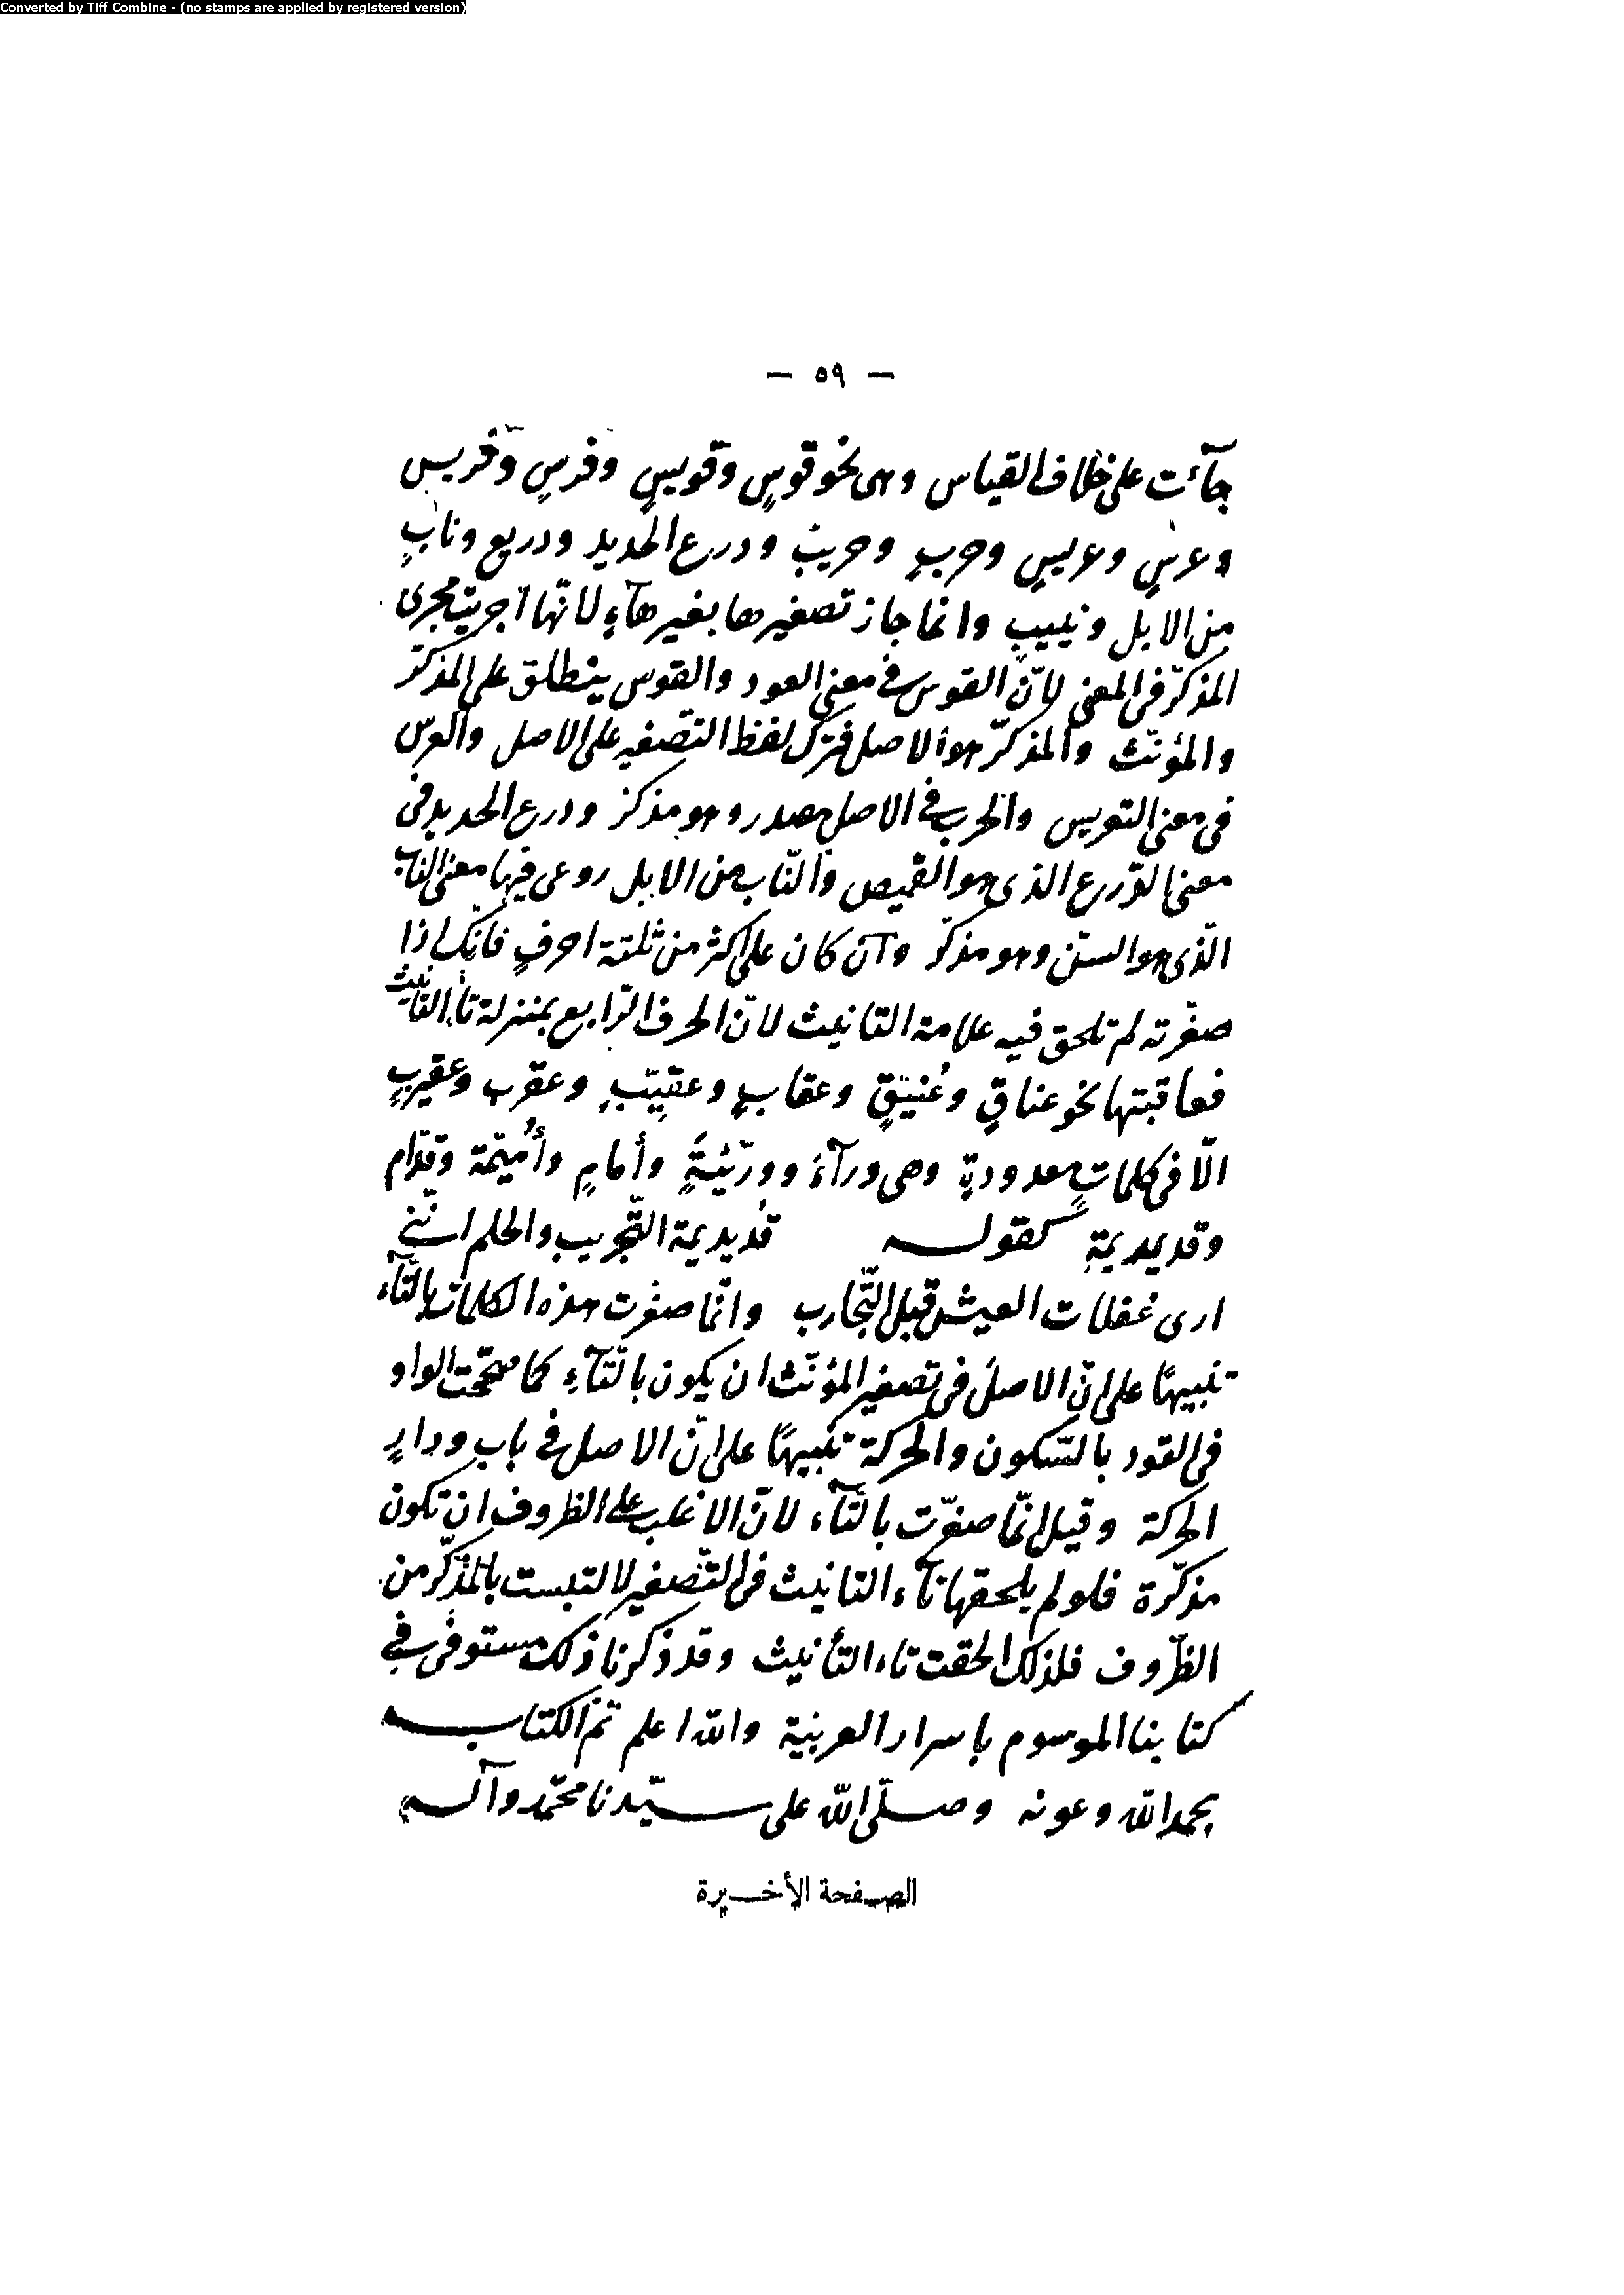 Converted by Tiff Combine - (no stamps are applied by registered version)
— ٥٩ —
جآءت على خلاف القياس وهى نحو قوسٍ وقويسٍ وفرسٍ وفريس
وعرسٍ وعريسٍ وحربٍ وحريبٍ ودرع الحديد ودريع ونابٍ
من الابل ونييبٍ وانما جاز تصغيرها بغير هآءٍ لانّها اجريت مجرى
المذكّر فى المعنى لانّ القوس فى معنى العود والقوس ينطلق على المذكّر
والمؤنّث والمذكّر هو الاصل فترك لفظ التّصغير على الاصل والعرس
فى معنى التعريس والحرب فى الاصل مصدر وهو مذكر ودرع الحديد فى
معنى الدّرع الذى هو القميص والنّاب من الابل روعى فيها معنى الناب
الّذى هو السنّ وهو مذكّر وان كان على اكثر من ثلثة احرفٍ فانّك اذا
صغّرته لم تلحق فيه علامة التانيث لانّ الحرف الرّابع بمنزلة تاء التانيث
فعاقبتها نحو عناقٍ وعُنيّقٍ وعقابٍ وعقيّبٍ وعقرب وعقيربٍ
الّا فى كلماتٍ معدودةٍ وهى ورآءَ وورّئيةٍ وأمامٍ وأُميّمة وقدّام
وقديديمةٍ كقوله قُديديمة التّجريب والحلم انّنى
ارى غفلات العيش قبل التّجارب وانّما صغرت هذه الكلمات بالتّآء
تنبيهًا على انّ الاصل فى تصغير المؤنّث ان يكون بالتّآءِ كما صحّحت الواو
فى القود بالسّكون والحركة تنبيهًا على انّ الاصل فى باب ودارٍ
الحركة وقيل انّما صغّرت بالتّآء لانّ الاغلب على الظروف ان تكون
مذكّرة فلو لم يلحقها تآء التانيث فى التّصغير لالتبست بالمذكّر من
الظّروف فلذلك الحقت تاء التأنيث وقد ذكرنا ذلك مستوفى فى
كتابنا الموسوم باسرار العربيّة والله اعلم تمّ الكتاب
بحمد الله وعونه وصلّى الله على سيّدنا محمّد وآله
الصفحة الأخيرة